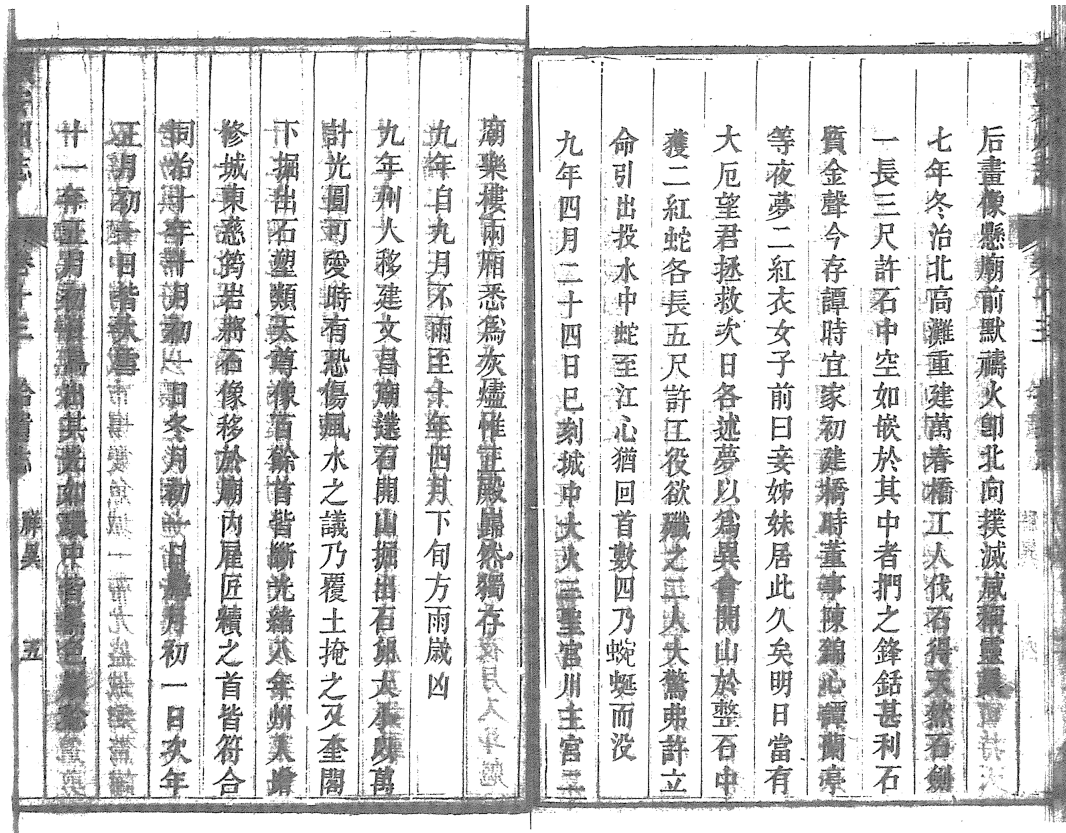 后畫像懸廟前默禱火卽北向撲滅咸稱靈異
七年冬治北高灘重建萬春橋工人伐石得天然石劍
一長三尺許石中空如嵌於其中者捫之鋒銛甚利石
質金聲今存譚時宜家初建橋時董事陳錦心譚蘭亭
等夜夢二紅衣女子前曰妾姊妹居此久矣明日當有
大厄望君拯救次日各述夢以爲異會開山於整石中
獲二紅蛇各長五尺許工役欲殲之工人大驚弗許立
命引出投水中蛇至江心猶回首數四乃蜿蜒而没
九年四月二十四日巳刻城中大火三聖宮川主宮二
廟樂樓兩廂悉爲灰燼惟正殿巋然獨存
九年自九月不雨至十年四月下旬方雨歲凶
九年州人移建文昌廟遶石開山掘出石卵大小以萬
計光圓可愛時有恐傷風水之議乃覆土掩之又奎閣
下掘出石塑類天尊像百餘首皆斷光緒八年州人增
修城東慈筠岩將石像移於廟內雇匠續之首皆符合
同治十年十月初一日冬月初一日臘月初一日次年
正月初一日皆大雪
廿一年正月初 其光如 中皆 色
卷十三 拾遺志 祥異 五